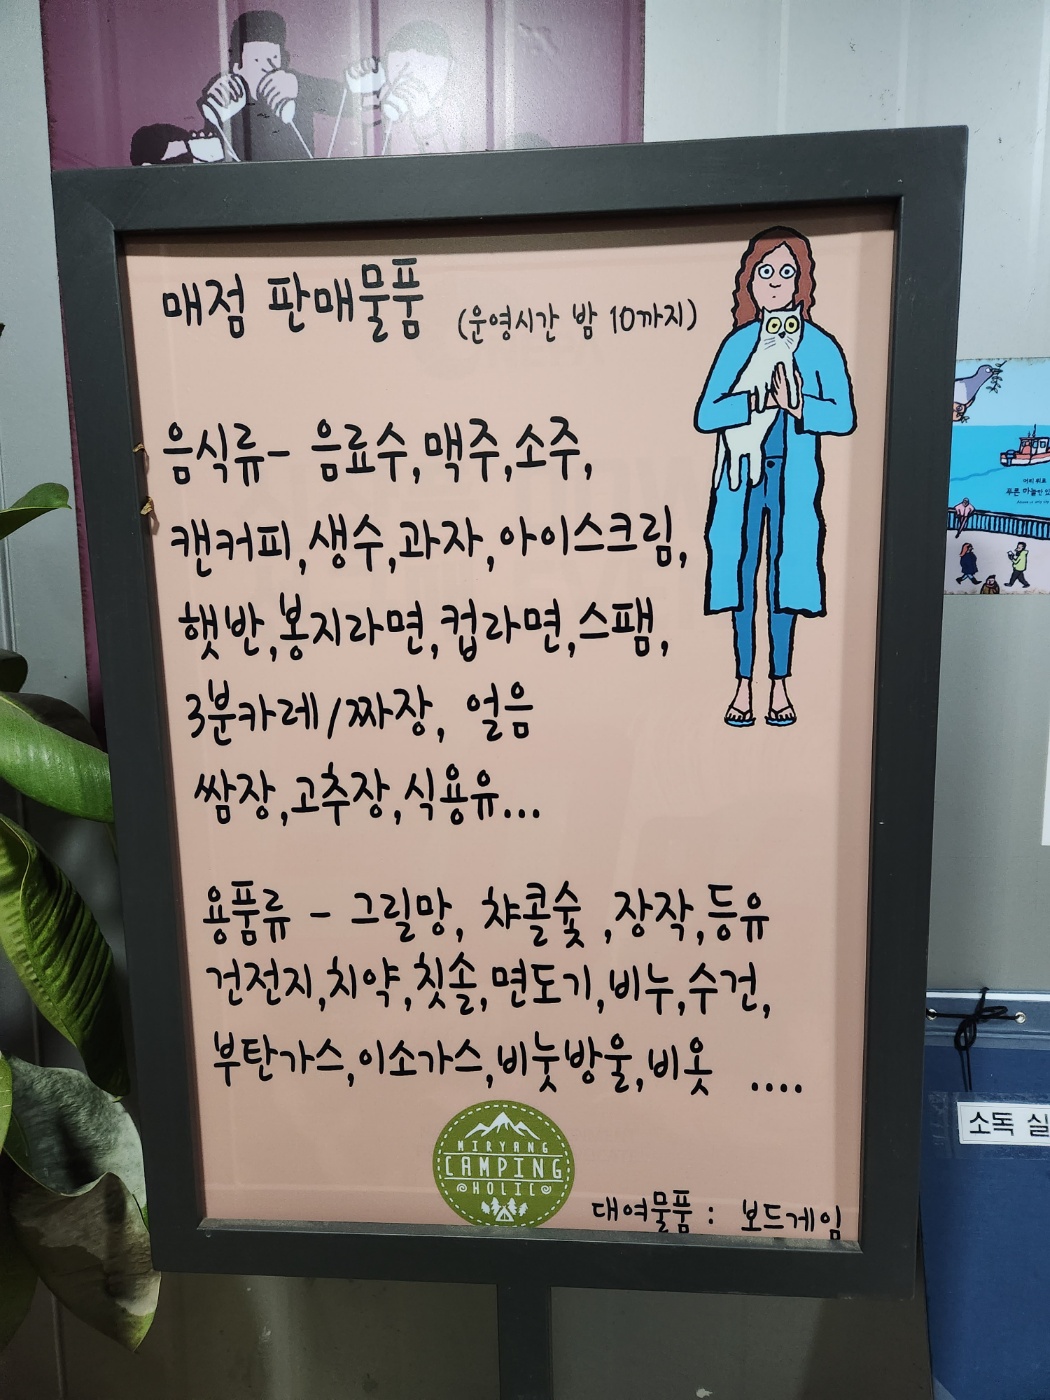 매점 판매물품 (운영시간 밤 10까지)
음식류- 음료수,맥주,소주,
캔커피,생수,과자,아이스크림,
햇반,봉지라면,컵라면,스팸,
3분카레/짜장, 얼음
쌈장,고추장,식용유...
용품류 - 그릴망, 챠콜숯,장작,등유
건전지,치약,칫솔,면도기,비누,수건,
부탄가스,이소가스,비눗방울,비옷 ....
MIRYANG
CAMPING
HOLIC
대여물품 : 보드게임
소독 실